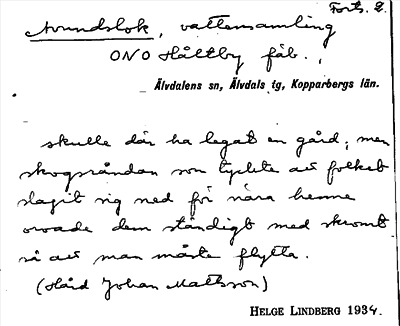 Forts. 2.
Avundslok, vattensamling
ONO Håltby fäb.,
Älvdalens sn, Älvdals tg, Kopparbergs län.
skulle där ha legat en gård, men
skogsråndan som tyckte att folket
slagit sig ned för nära henne
oroade dem ständigt med skromt
så att man måste flytta.
(Hård Johan Mattsson)
HELGE LINDBERG 1934.